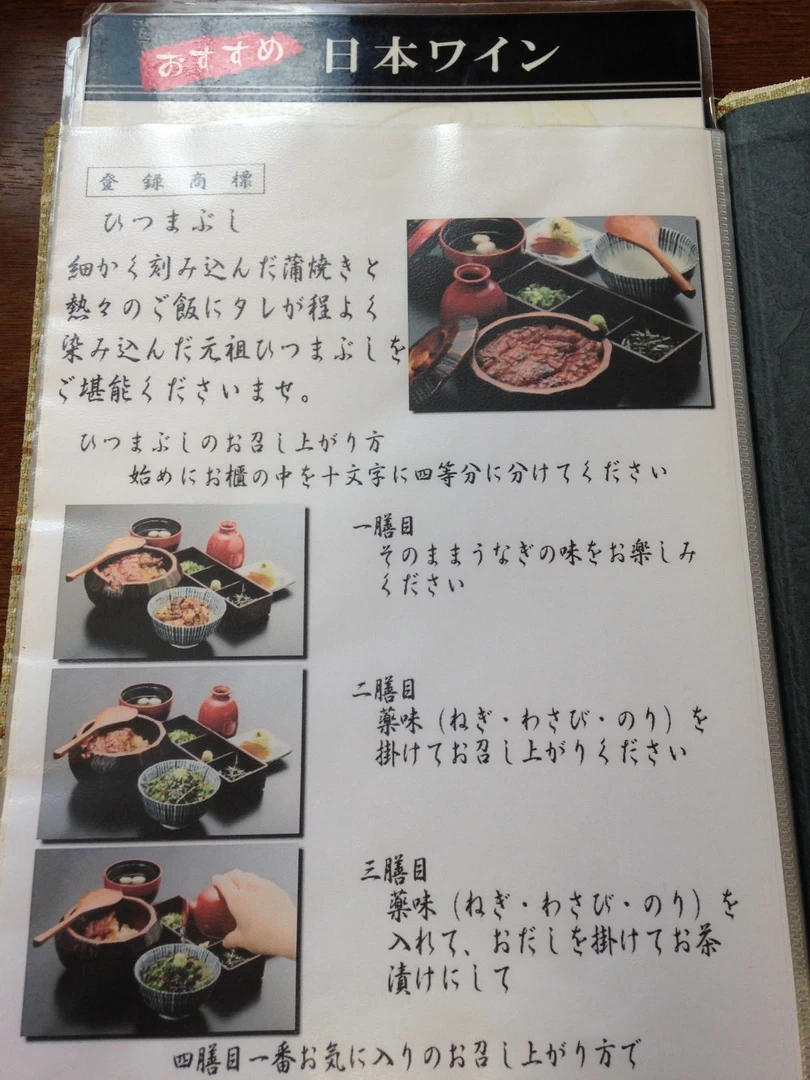 おすすめ 日本ワイン
登録商標
ひつまぶし
細かく刻み込んだ蒲焼きと
熱々のご飯にタレが程よく
染み込んだ元祖ひつまぶしを
ご堪能くださいませ。
ひつまぶしのお召し上がり方
始めにお櫃の中を十文字に四等分に分けてください
一膳目
そのままうなぎの味をお楽しみ
ください
二膳目
薬味（ねぎ・わさび・のり）を
掛けてお召し上がりください
三膳目
薬味（ねぎ・わさび・のり）を
入れて、おだしを掛けてお茶
漬けにして
四膳目一番お気に入りのお召し上がり方で